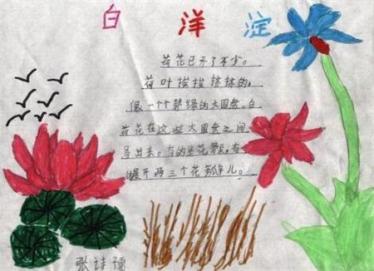 白洋淀
荷花已开了不少。
荷叶挨挨挤挤的,
像一个个碧绿的大圆盘。白
荷花在这些大圆盘之间
冒出来。有的
展开两三个花瓣儿。
张诗